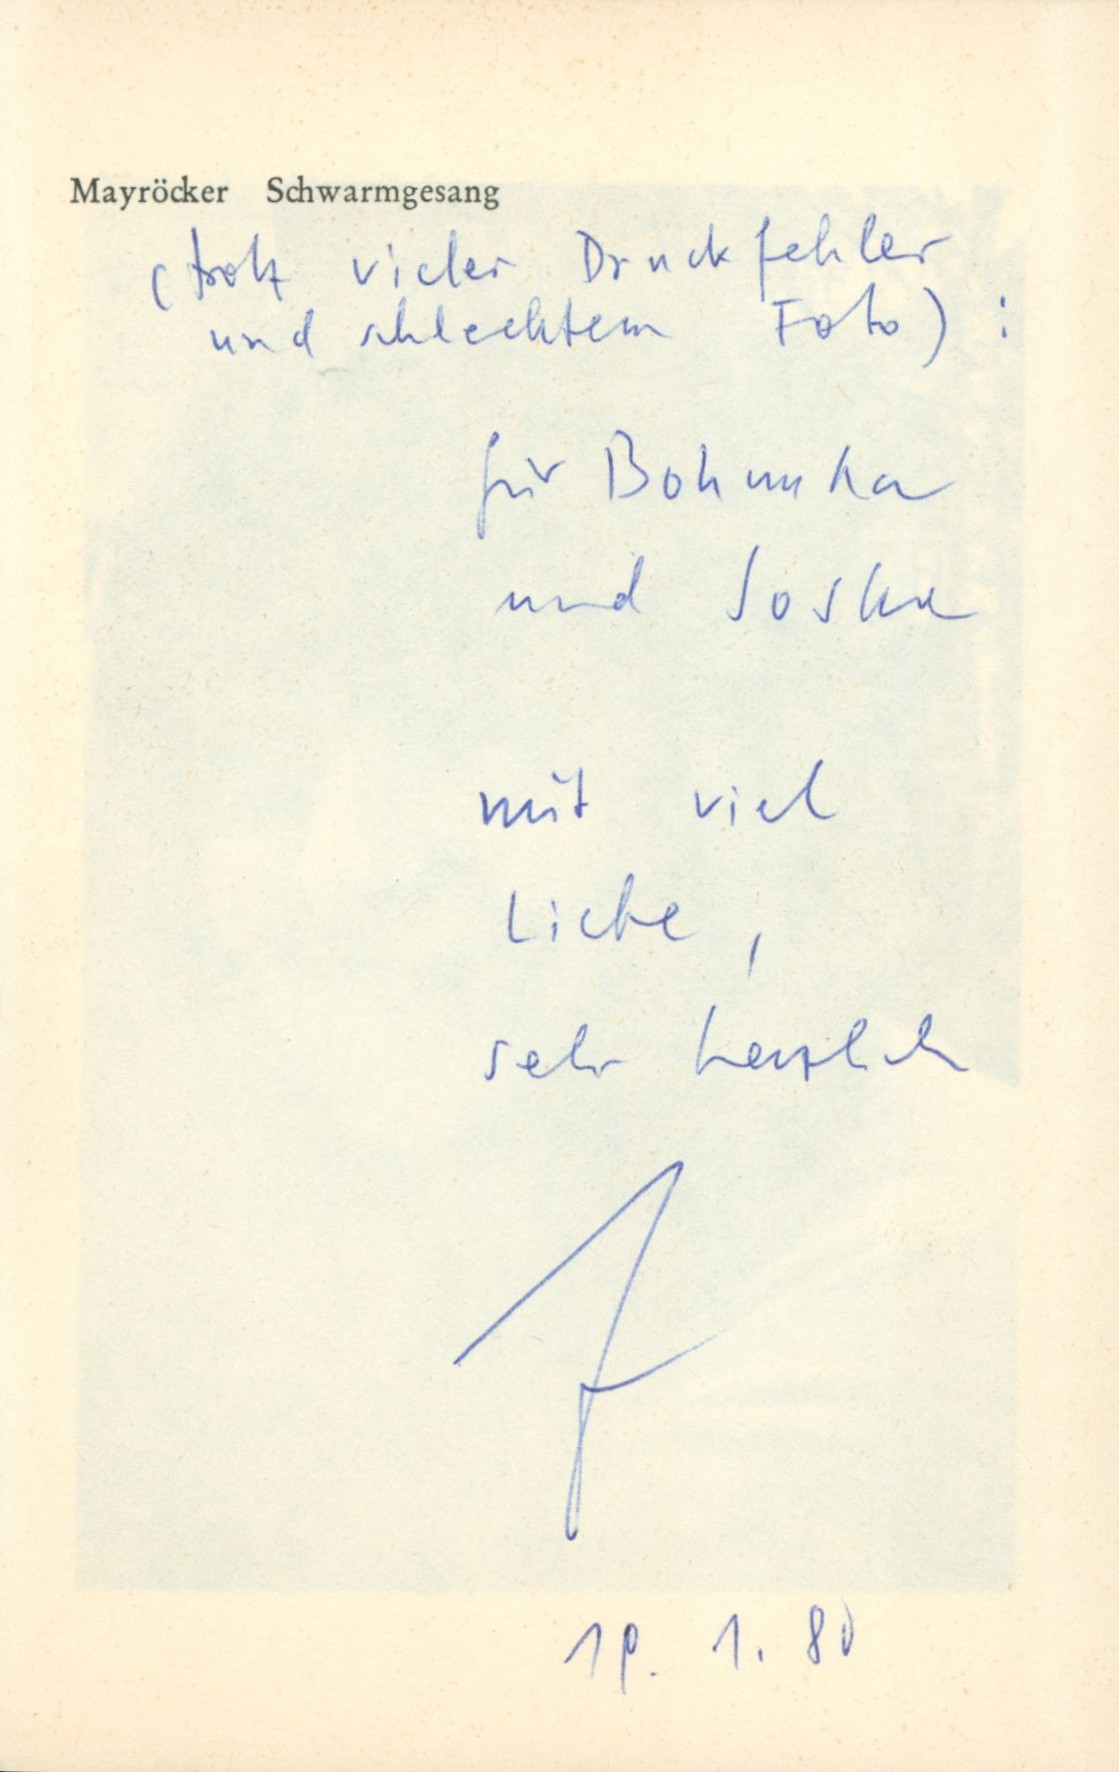 Mayröcker Schwarmgesang
(trotz vieler Druckfehler
und schlechtem Foto) :
für Bohunka
und Joska
mit viel
Liebe,
sehr herzlich
F
19. 1. 80